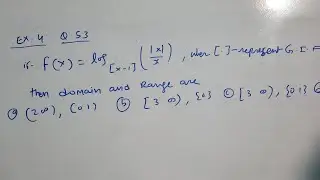 Ex. 4 Q 53
if f(x) = log[x-1] (|x|/x), when [.]-represent G. I. F
then domain and Range are
a (2 ∞), {0 1} b [3 ∞), {0} c [3 ∞), {0 1}